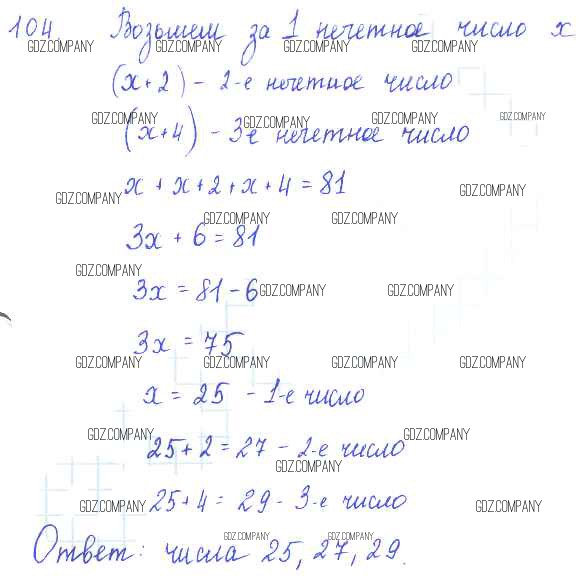 104. Возьмем за 1 нечетное число x
GDZ.COMPANY GDZ.COMPANY GDZ.COMPANY GDZ.COMPANY
(x+2) - 2-е нечетное число
GDZ.COMPANY GDZ.COMPANY GDZ.COMPANY GDZ.COMPANY
(x+4) - 3-е нечетное число
x + x + 2 + x + 4 = 81 GDZ.COMPANY
GDZ.COMPANY
GDZ.COMPANY GDZ.COMPANY
3x + 6 = 81
GDZ.COMPANY
3x = 81 - 6 GDZ.COMPANY GDZ.COMPANY
3x = 75
GDZ.COMPANY GDZ.COMPANY GDZ.COMPANY GDZ.COMPANY
x = 25 - 1-е число
GDZ.COMPANY GDZ.COMPANY
25 + 2 = 27 - 2-е число
GDZ.COMPANY
GDZ.COMPANY 25 + 4 = 29 - 3-е число GDZ.COMPANY
GDZ.COMPANY GDZ.COMPANY
Ответ: числа 25, 27, 29.